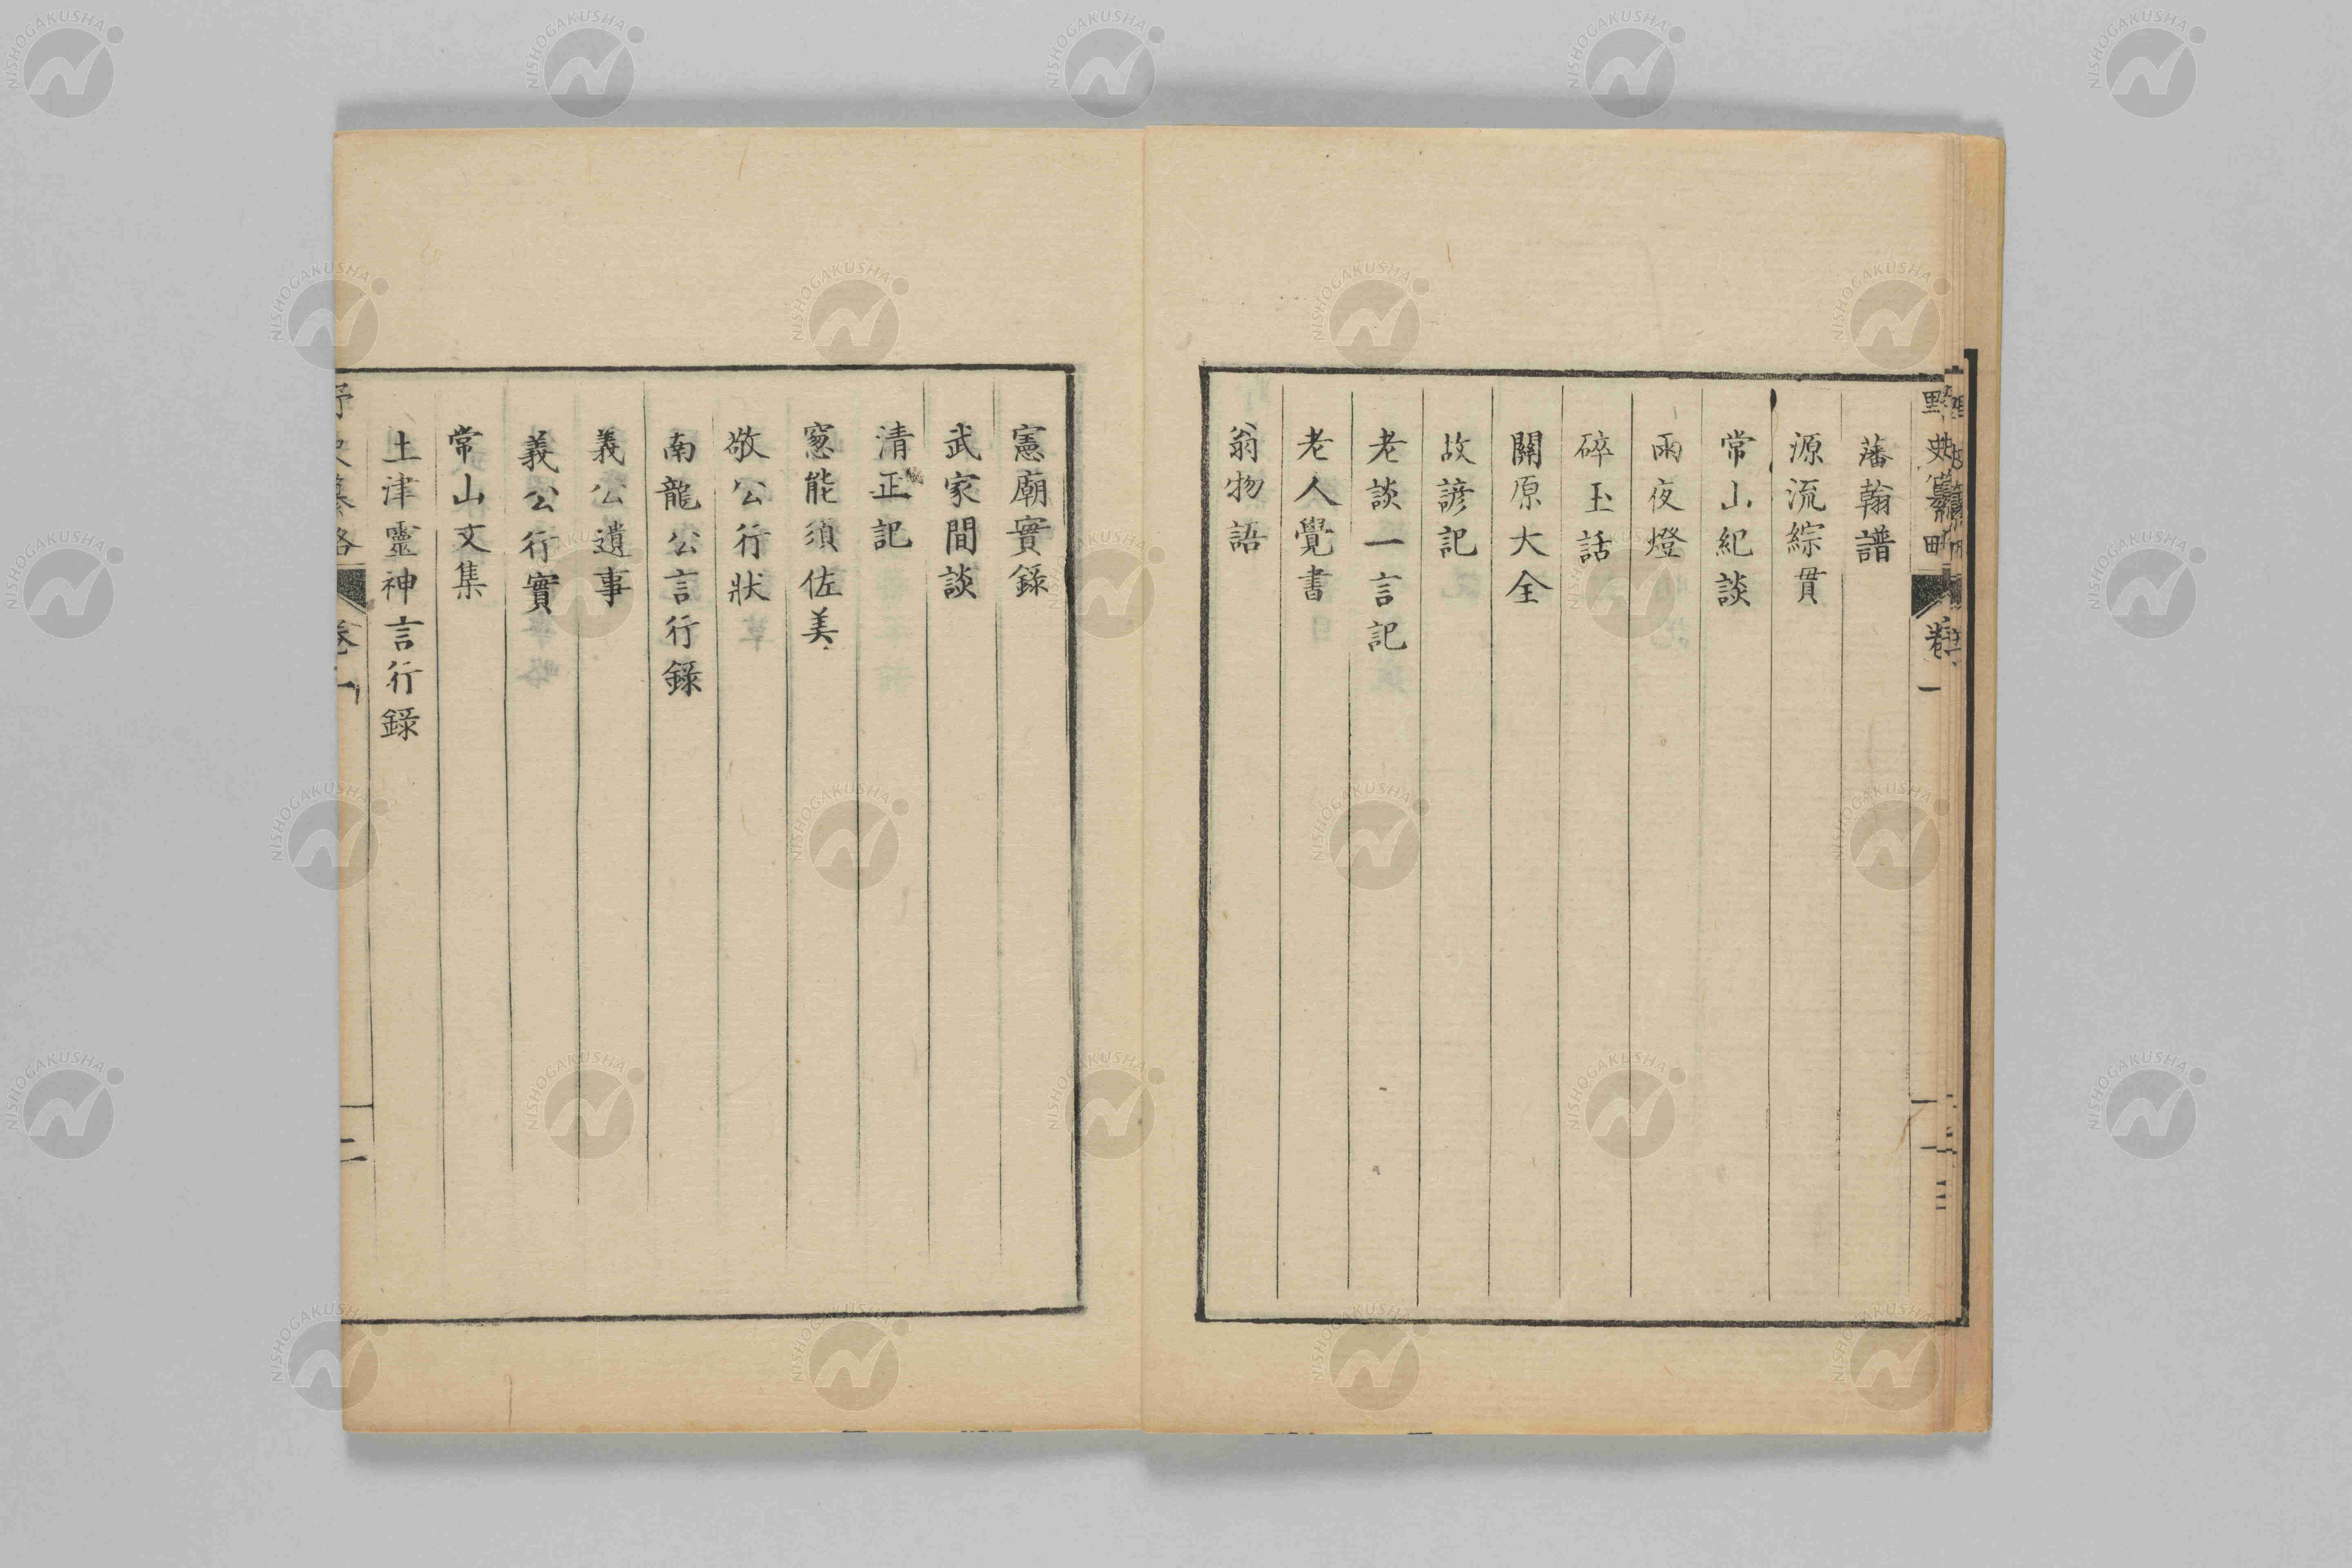 藩翰譜
源流綜貫
常山紀談
雨夜燈
碎玉話
關原大全
故諺記
老談一言記
老人覺書
翁物語
憲廟實錄
武家間談
清正記
窓能須佐美
敬公行狀
南龍公言行錄
義公遺事
義公行實
常山文集
土津靈神言行錄
卷一
二
NISHOGAKUSHA